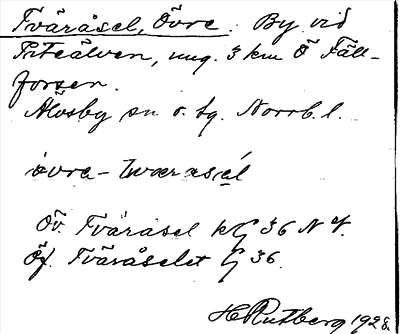 Tväråsel, Övre. By vid
Piteälven, ung. 3 km Ö Fäll-
forsen.
Älvsby sn o. tg. Norrb. l.
övra - tværasél
Öv. Tväråsel kG 36 N 4.
Öf. Tväråselet G 36.
H. Rutberg 1928.